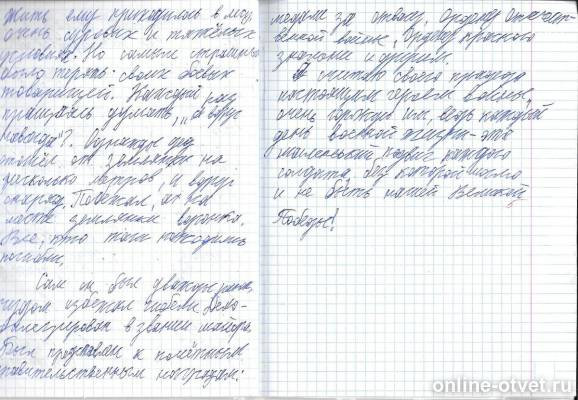 жить ему приходилось в мед,
очень суровых и тяжёлых
условиях. Но самым страшным
было терять своих боевых
товарищей. Каждый раз
прощаясь думать, "а вдруг
навсегда"? Однажды дед
отошёл от землянки на
несколько метров, и вдруг
снаряд. Побежал, а на
месте землянки воронка.
Все, кто там находились
погибли.
Сам он был дважды ранен,
чудом избежал гибели. Демо-
билизирован в звании майора.
Был представлен к почётным
правительственным наградам:
медали за отвагу, Ордену Отечест-
венной войны, Ордену красного
знамени и другим.
Я считаю своего прадеда
настоящим героем войны,
очень горжусь им, ведь каждый
день военной жизни - это
маленький подвиг каждого
солдата, без которой могло
и не быть нашей Великой
Победы!
online-otvet.ru